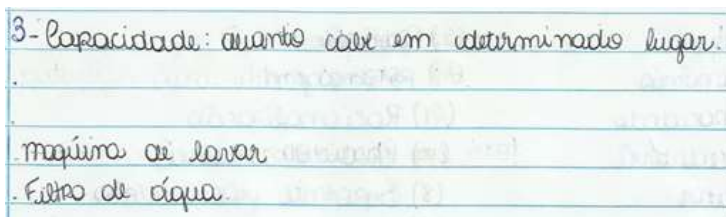 3- Capacidade: quanto cabe em determinado lugar.
.
.
. maquina de lavar
. Filtro de água.